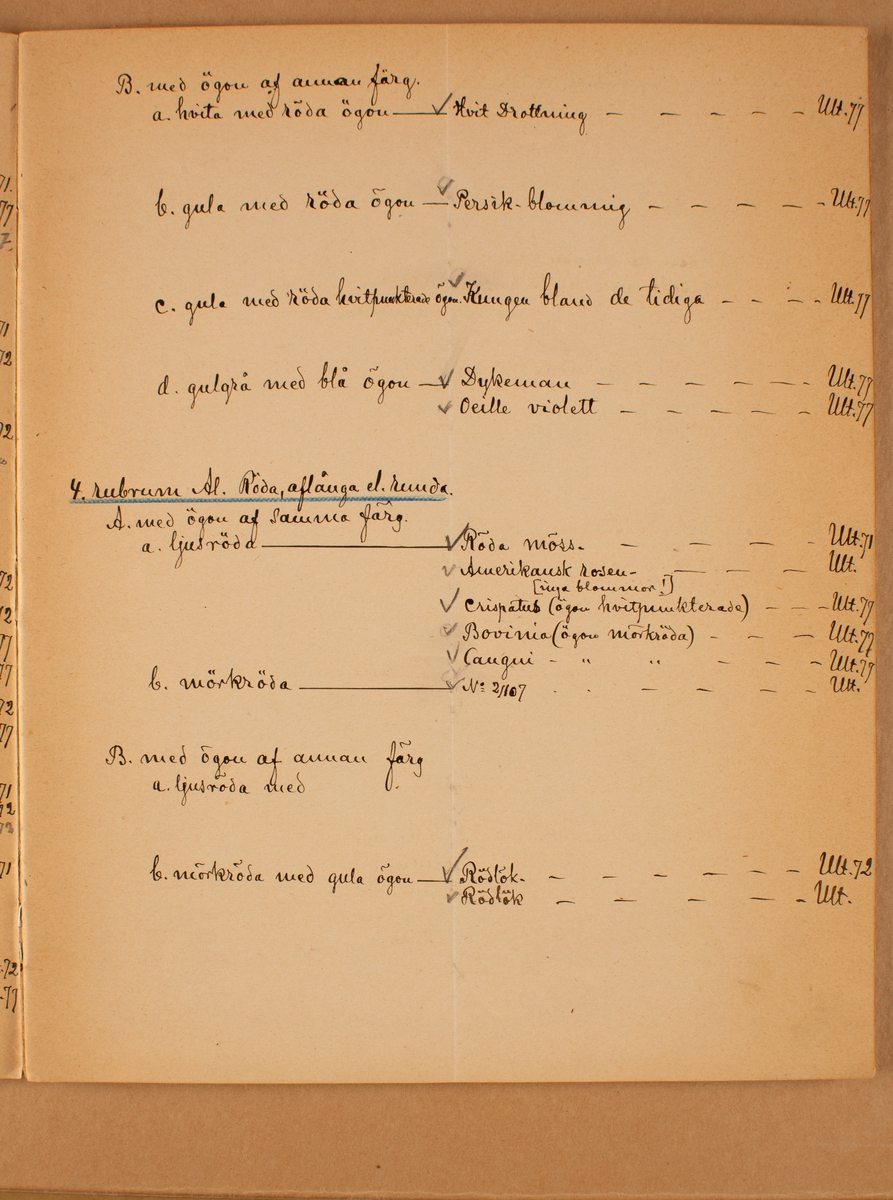 B. med ögon af annan färg.
a. hvita med röda ögon — ✓ Hvit Drottning — — — — Ult. 77
b. gula med röda ögon — ✓ Persik-blommig — — — — Ult. 77
c. gula med röda hvitpunkterade ögon. ✓ Kungen bland de tidiga — — — — Ult. 77
d. gulgrå med blå ögon — ✓ Dykeman — — — — — Ult. 77
✓ Oeille violett — — — — — Ult. 77
4. rubrum Al. Röda, aflånga el. runda.
A. med ögon af samma färg.
a. ljusröda — ✓ Röda möss- — — — — Ult. 71
✓ Amerikansk rosen- — — — Ult.
[inga blommor!]
✓ Crispatus (ögon hvitpunkterade) — — — Ult. 77
✓ Bovinia (ögon mörkröda) — — — Ult. 77
✓ " " — — — — Ult. 77
b. mörkröda — ✓ No 2/107 — — — — Ult.
B. med ögon af annan färg
a. ljusröda med
b. mörkröda med gula ögon — ✓ Rödlök- — — — — — Ult. 72
✓ Rödlök — — — — — Ult.
71.
77
7.
71
72
72
72
12
77
77
72
77
71
72
73
71
-72
-77